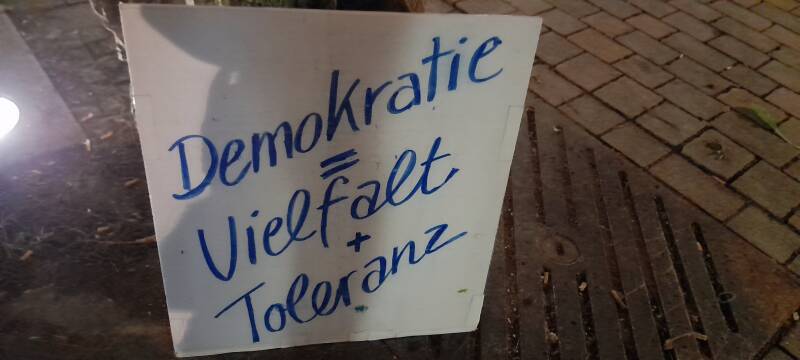 Demokratie
=
Vielfalt
+
Toleranz